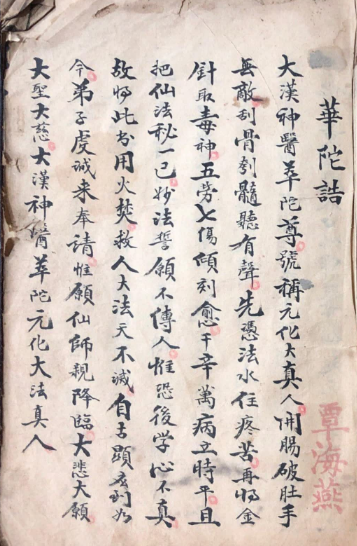 華陀誥
大漢神醫華陀尊號稱元化大真人開腸破肚手
無敵刮骨刳髓聽有聲先憑法水住疼苦再將金
針取毒神五劳七傷傾刻愈千辛萬病立時平且
把仙法秘一己妙法誓願不傳人惟恐後学心不真
故將此书用火焚救人大法天不滅自古顕應到如
今弟子虔誠来奉請惟願仙師親降臨大悲大願
大聖大慈大漢神醫華陀元化大法真人
覃海燕